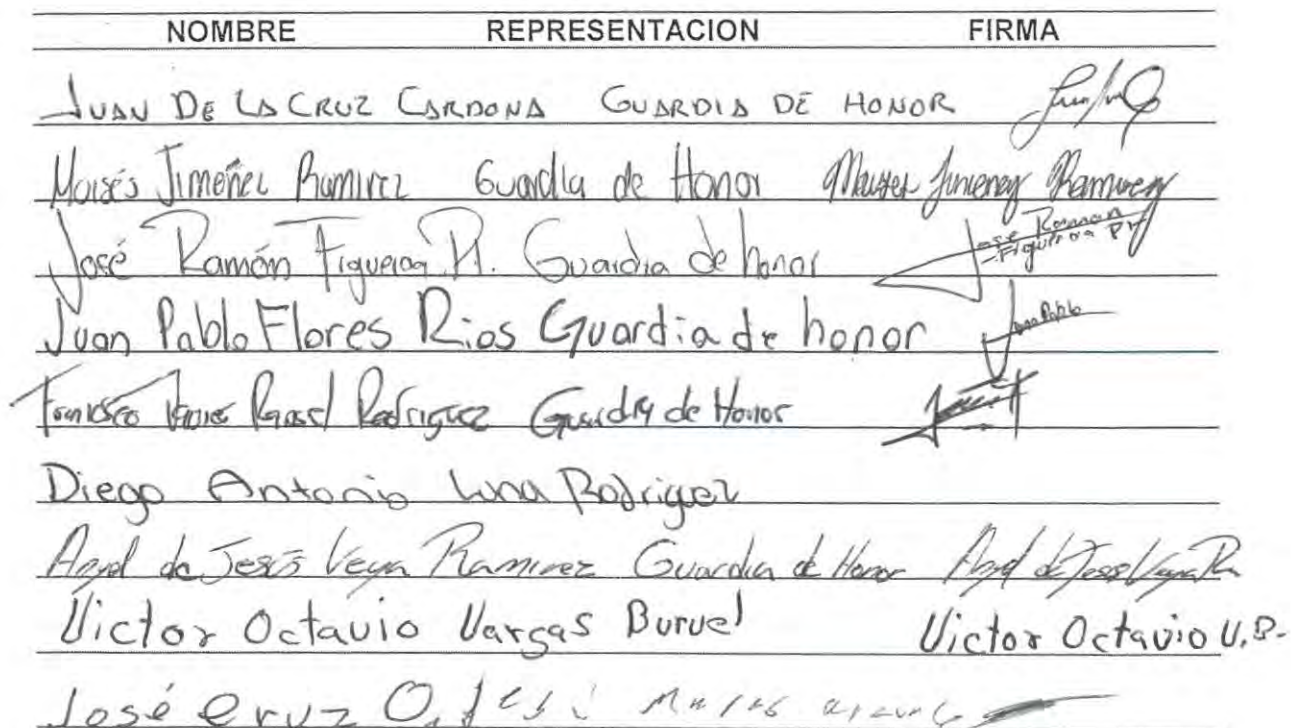 NOMBRE REPRESENTACION FIRMA
JUAN DE LA CRUZ CARDONA GUARDIA DE HONOR
Moisés Jiménez Ramirez Guardia de Honor Moises Jimenez Ramirez
José Ramón Figueroa P. Guardia de honor Jose Ramon Figueroa
Juan Pablo Flores Rios Guardia de honor Juan Pablo
Francisco Javier Rangel Rodriguez Guardia de Honor
Diego Antonio Luna Rodriguez
Angel de Jesús Vega Ramirez Guardia de Honor Angel de Jesus Vega
Victor Octavio Vargas Buruel Victor Octavio V.B.
José Cruz O.